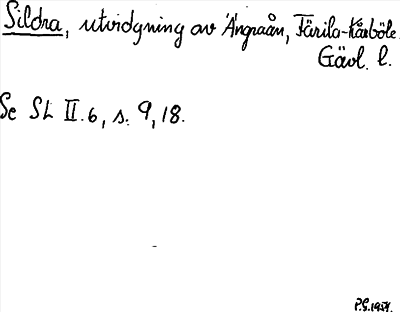 Sildra, utvidgning av Ängraån, Färila-Kårböle
Gävl. l.
Se SL II.6, s. 9, 18.
P.G. 1954.